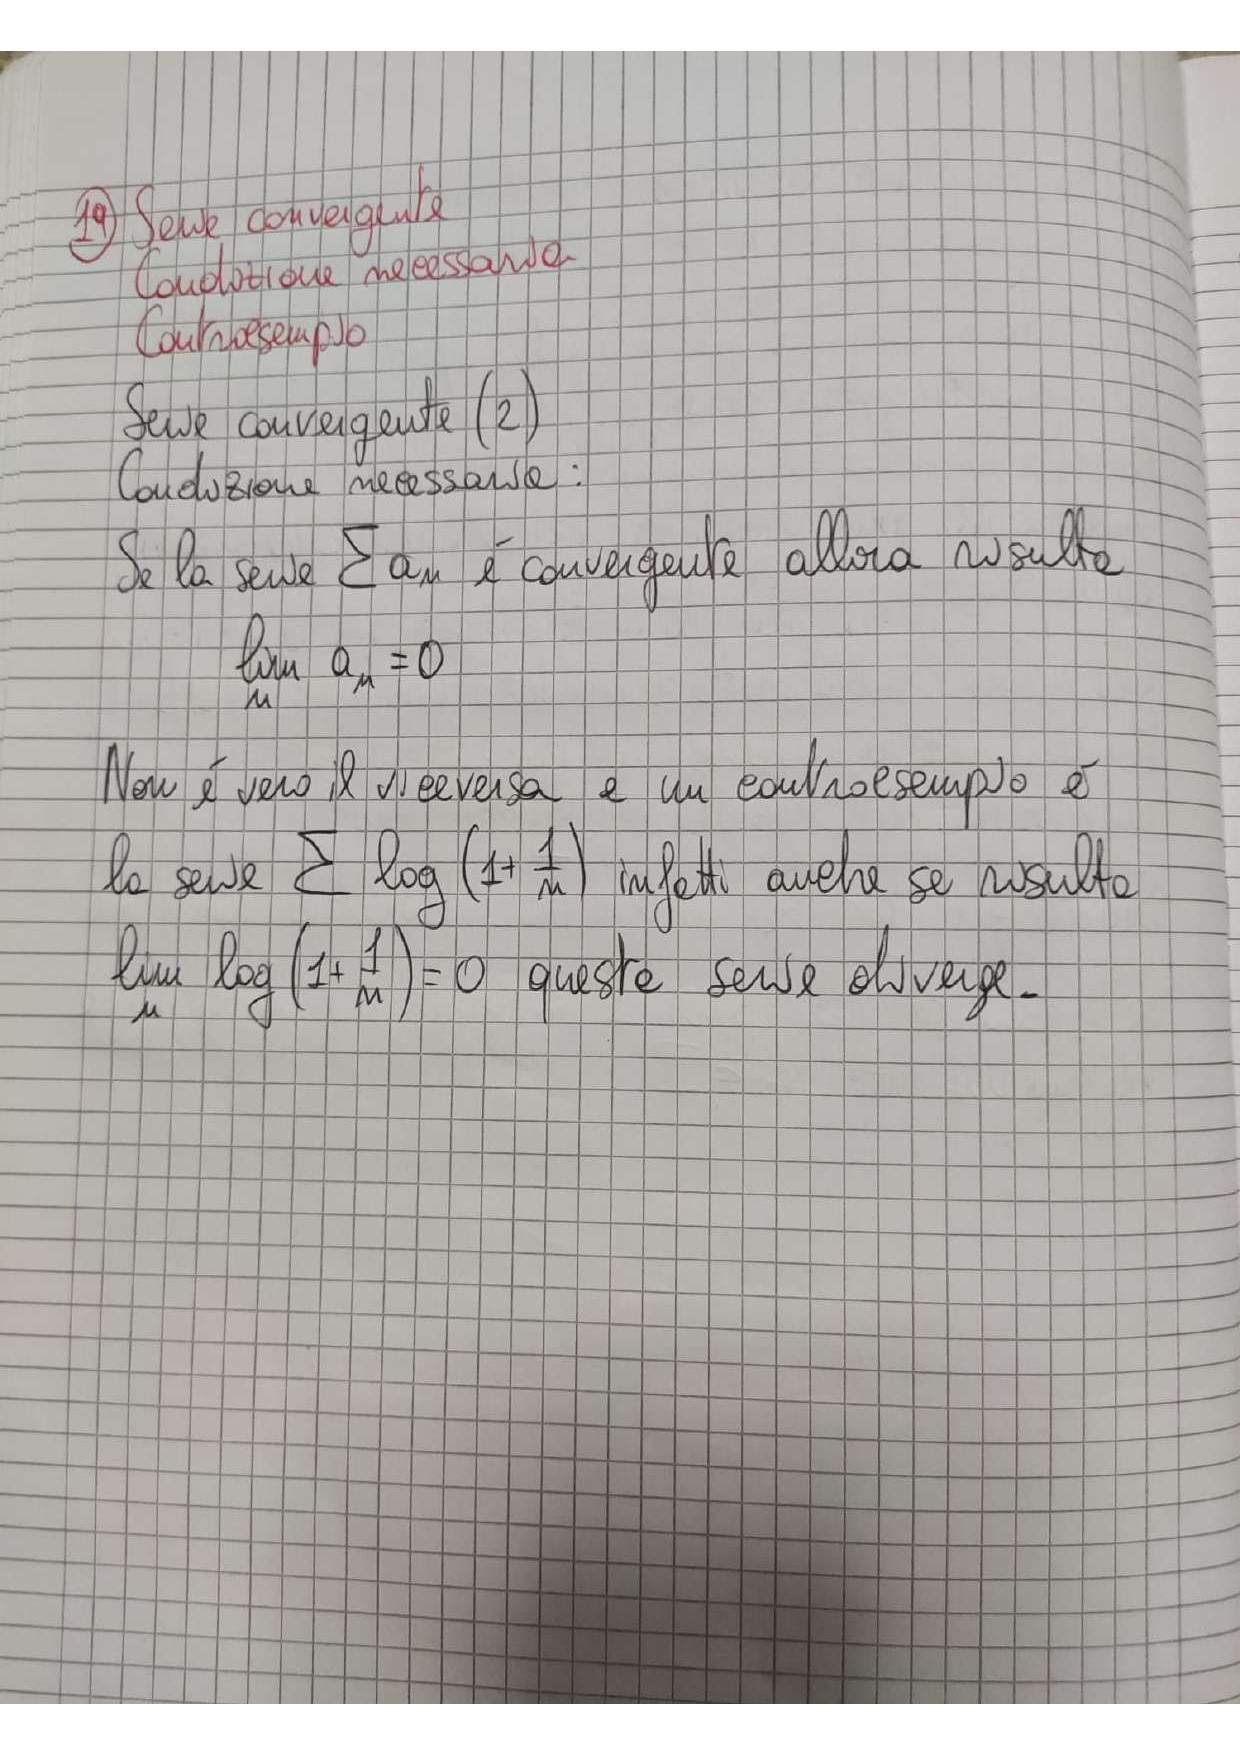 19) Serie convergente
Condizione necessaria
Controesempio
Serie convergente (2)
Condizione necessaria:
Se la serie ∑ aₙ é convergente allora risulta
lim aₙ = 0
n
Non é vero il viceversa e un controesempio é
la serie ∑ log (1 + 1/n) infatti anche se risulta
lim log (1 + 1/n) = 0 questa serie diverge.
n